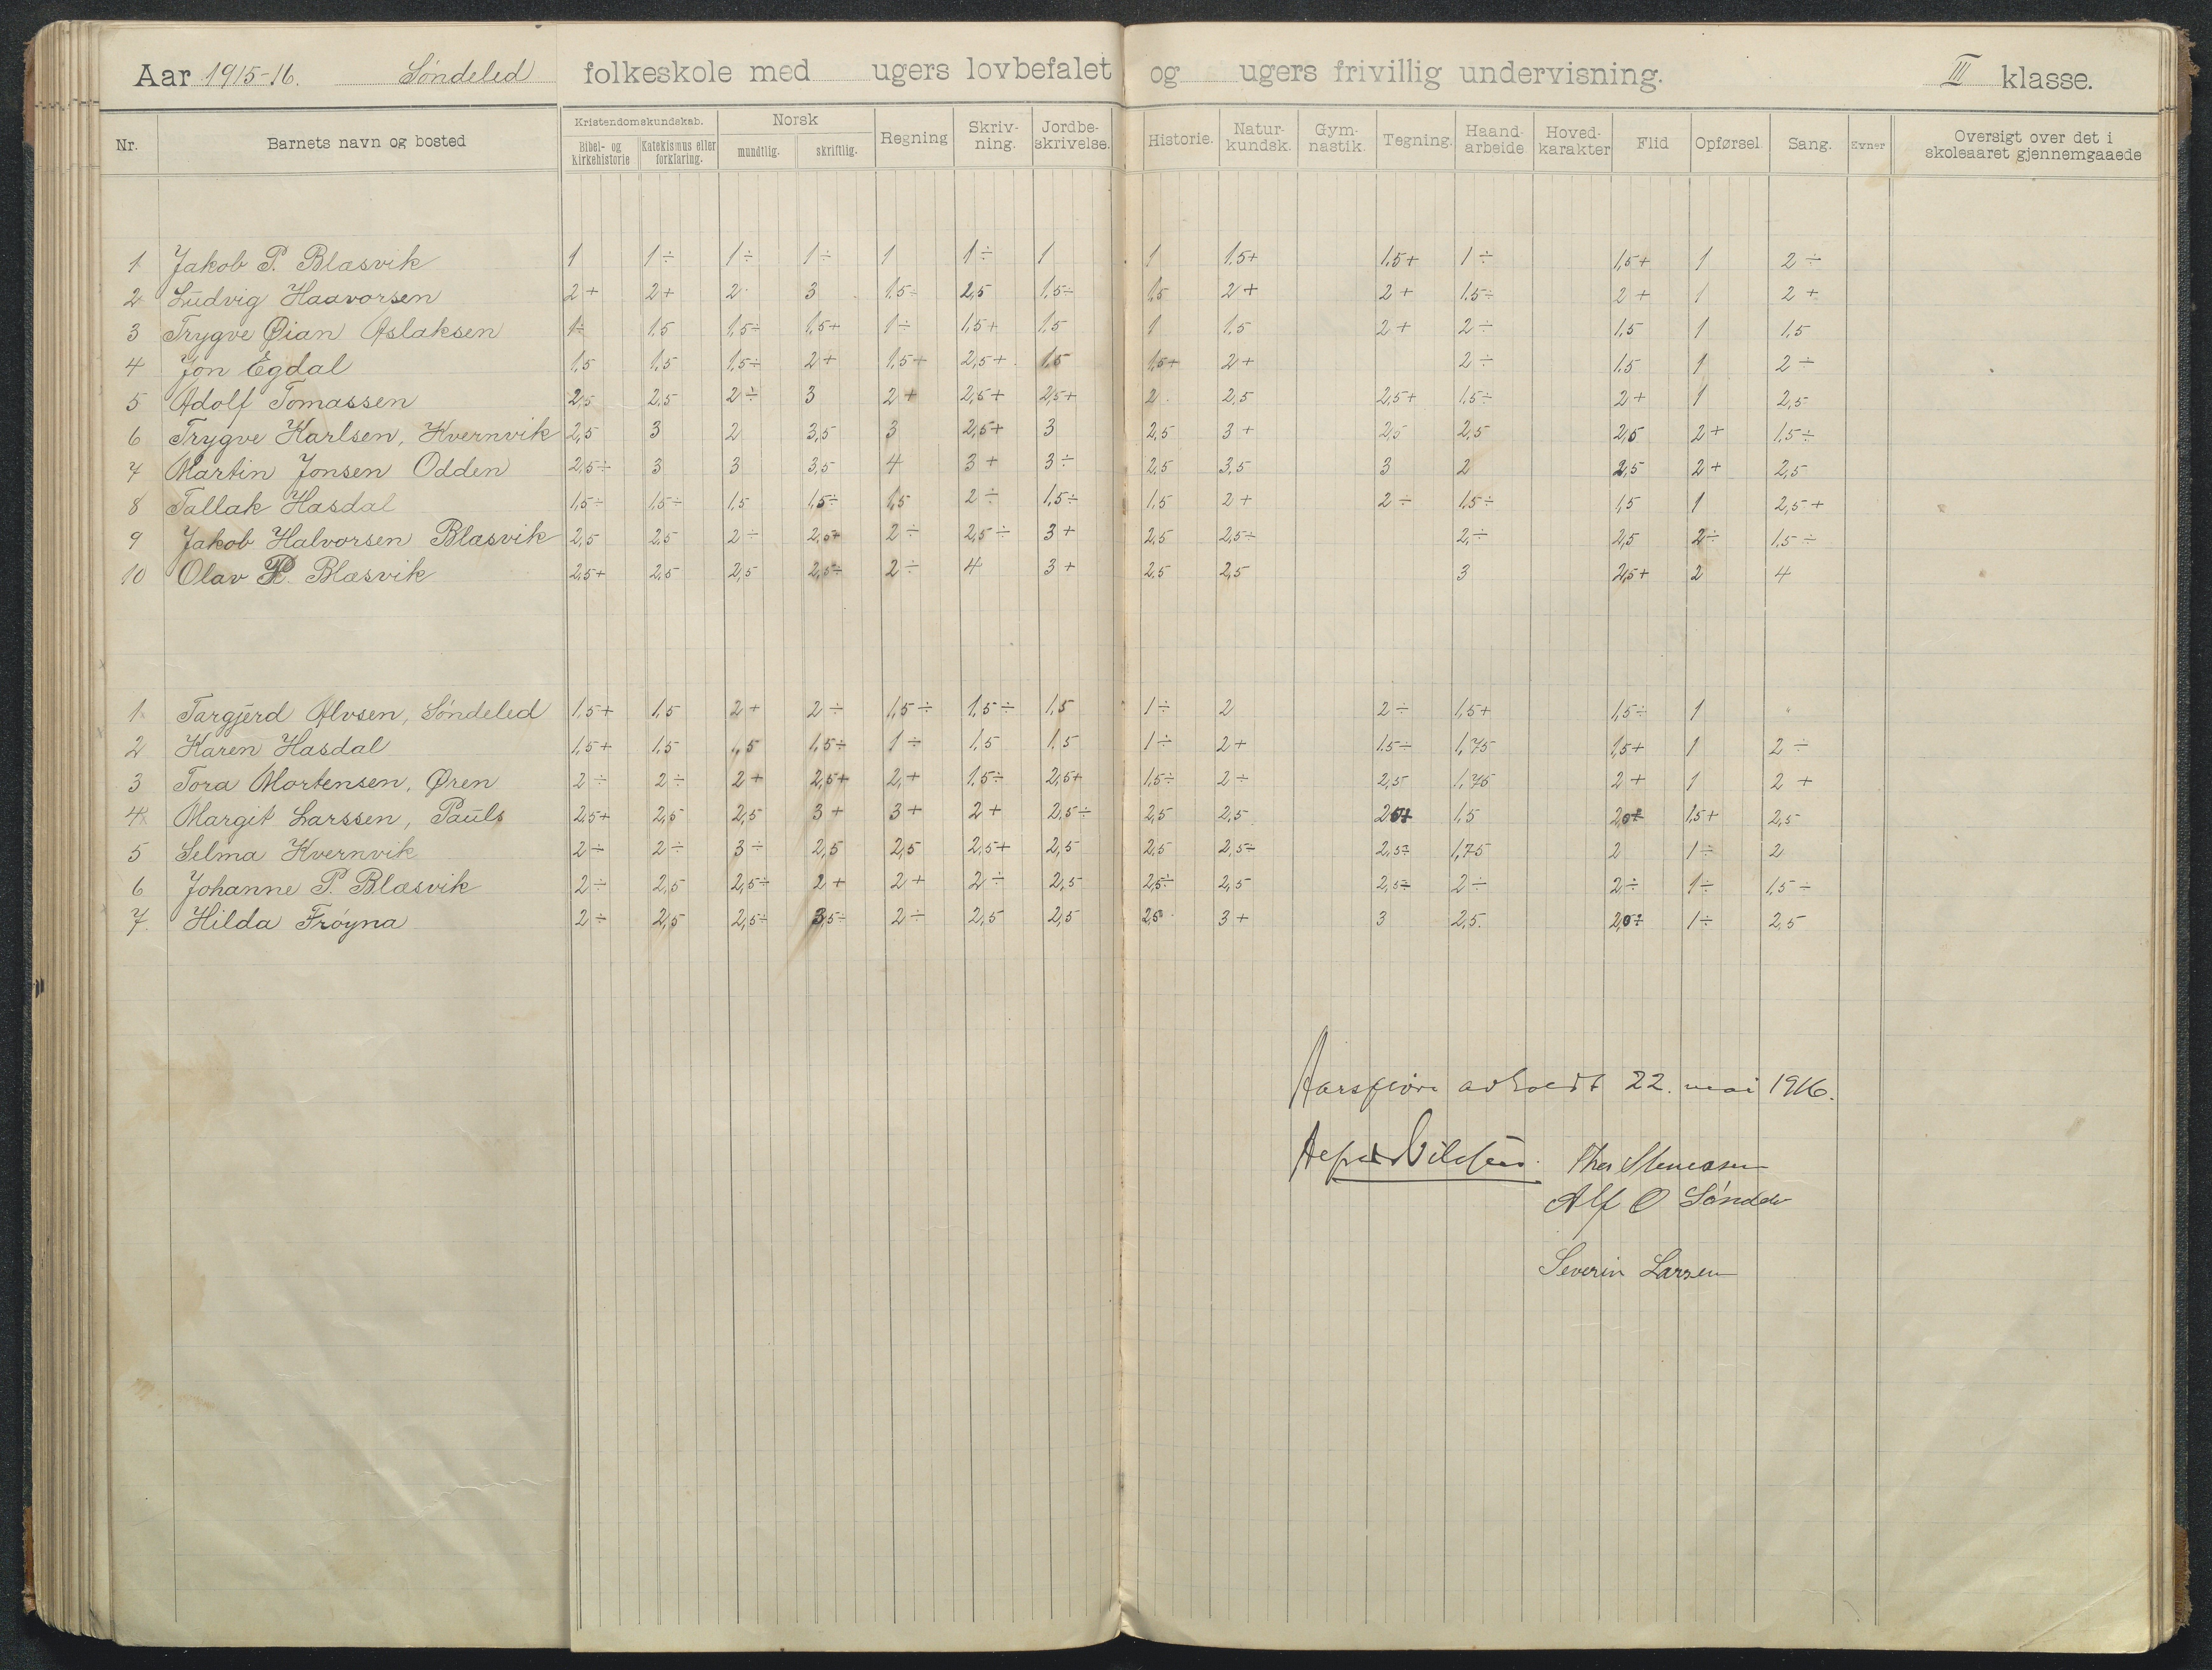 Aar 1915-16. Søndeled folkeskole med ugers lovbefalet og ugers frivillig undervisning. III klasse.
Nr. Barnets navn og bosted Kristendomskundskab. Bibel- og kirkehistorie Katekismus eller forklaring. Norsk mundtlig. skriftlig. Regning Skriv-ning. Jordbe-skrivelse. Historie. Natur-kundsk. Gym-nastik. Tegning. Haand-arbeide Hoved-karakter Flid Opførsel Sang. Evner Oversigt over det i skoleaaret gjennemgaaede
1 Jakob P. Blæsvik 1 1÷ 1÷ 1÷ 1 1÷ 1 1 1.5+ 1.5+ 1÷ 1,5+ 1 2÷
2 Ludvig Haavorsen 2+ 2+ 2 3 1.5÷ 2,5 1.5÷ 1,5 2+ 2+ 1.5÷ 2+ 1 2+
3 Trygve Øian Aslaksen 1÷ 1.5 1,5÷ 1,5+ 1÷ 1.5+ 1.5 1 1.5 2+ 2÷ 1.5 1 1,5
4 Jon Egdal 1,5 1,5 1,5÷ 2+ 1,5+ 2,5+ 1,5 1,5+ 2+ 2÷ 1.5 1 2÷
5 Adolf Tomassen 2,5 2,5 2÷ 3 2+ 2,5+ 2,5+ 2 2,5 2,5+ 1.5÷ 2+ 1 2,5
6 Trygve Karlsen, Kvernvik 2,5 3 2 3,5 3 2,5+ 3 2,5 3+ 2,5 2,5 2,5 2+ 1,5÷
7 Martin Jonsen Odden 2,5÷ 3 3 3,5 4 3+ 3÷ 2,5 3,5 3 2 2,5 2+ 2,5
8 Tallak Hasdal 1,5÷ 1,5÷ 1,5 1,5÷ 1,5 2÷ 1,5÷ 1,5 2+ 2÷ 1,5÷ 1,5 1 2,5+
9 Jakob Halvorsen Blæsvik 2,5 2,5 2÷ 2,5+ 2÷ 2,5÷ 3+ 2,5 2,5÷ 2÷ 2,5 2÷ 1,5÷
10 Olav P. Blæsvik 2,5+ 2,5 2,5 2,5÷ 2÷ 4 3+ 2,5 2,5 3 2,5+ 2 4
1 Targjerd Alvsen, Søndeled 1,5+ 1,5 2+ 2÷ 1,5÷ 1.5÷ 1,5 1÷ 2 2÷ 1,5+ 1,5÷ 1
2 Karen Hasdal 1,5+ 1,5 1,5 1,5÷ 1÷ 1,5 1,5 1÷ 2+ 1.5÷ 1,75 1,5+ 1 2÷
3 Tora Mortensen, Øren 2÷ 2÷ 2+ 2,5+ 2+ 1.5÷ 2,5+ 1.5÷ 2÷ 2,5 1,75 2+ 1 2+
4 Margit Larssen, Pauls 2,5+ 2,5 2,5 3+ 3+ 2+ 2,5÷ 2,5 2,5 1,5 1,5+ 2,5
5 Selma Kvernvik 2÷ 2÷ 3÷ 2,5 2,5 2,5+ 2,5 2,5 2,5÷ 2,5÷ 1,75 2 1÷ 2
6 Johanne P. Blæsvik 2÷ 2,5 2,5÷ 2+ 2+ 2÷ 2,5 2,5÷ 2,5 2,5÷ 2÷ 2÷ 1÷ 1.5÷
7 Hilda Frøyna 2÷ 2,5 2,5÷ 3,5÷ 2÷ 2,5 2,5 2,5 3+ 3 2,5 1÷ 2,5
Aarsprøve avholdt 22. mai 1916.
Alf O Sønde
Severin Larsen